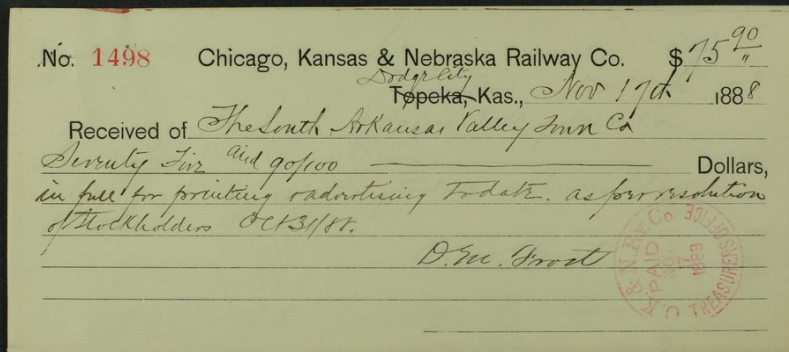 No. 1498 Chicago, Kansas & Nebraska Railway Co. $75 90/"
Dodge City
Topeka, Kas., Nov 17th 1888
Received of The South Arkansas Valley Town Co
Seventy Five and 90/100 Dollars,
in full for printing & advertising to date. as per resolution
of Stockholders Oct 31/88.
D. M. Frost
C. K. & N. Ry. Co. TREASURER'S OFFICE
PAID
NOV
1888